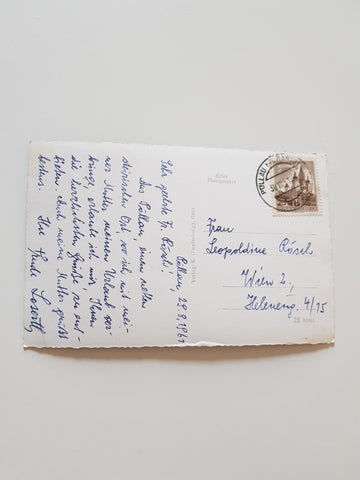 Pöllau, 29.8.1961
Sehr geehrte Fr. Rösel!
Aus Pöllau, einem netten
steirischen Ort, wo ich mit mei-
ner Mutter meinen Urlaub ver-
bringe, erlaube ich mir Ihnen
die herzlichsten Grüße zu ent-
bieten. Auch meine Mutter grüßt
bestens. Ihre
Echte
Photographie
PÖLLAU
Frau
Leopoldine Rösel
Wien 2.,
Heleneng. 4/15